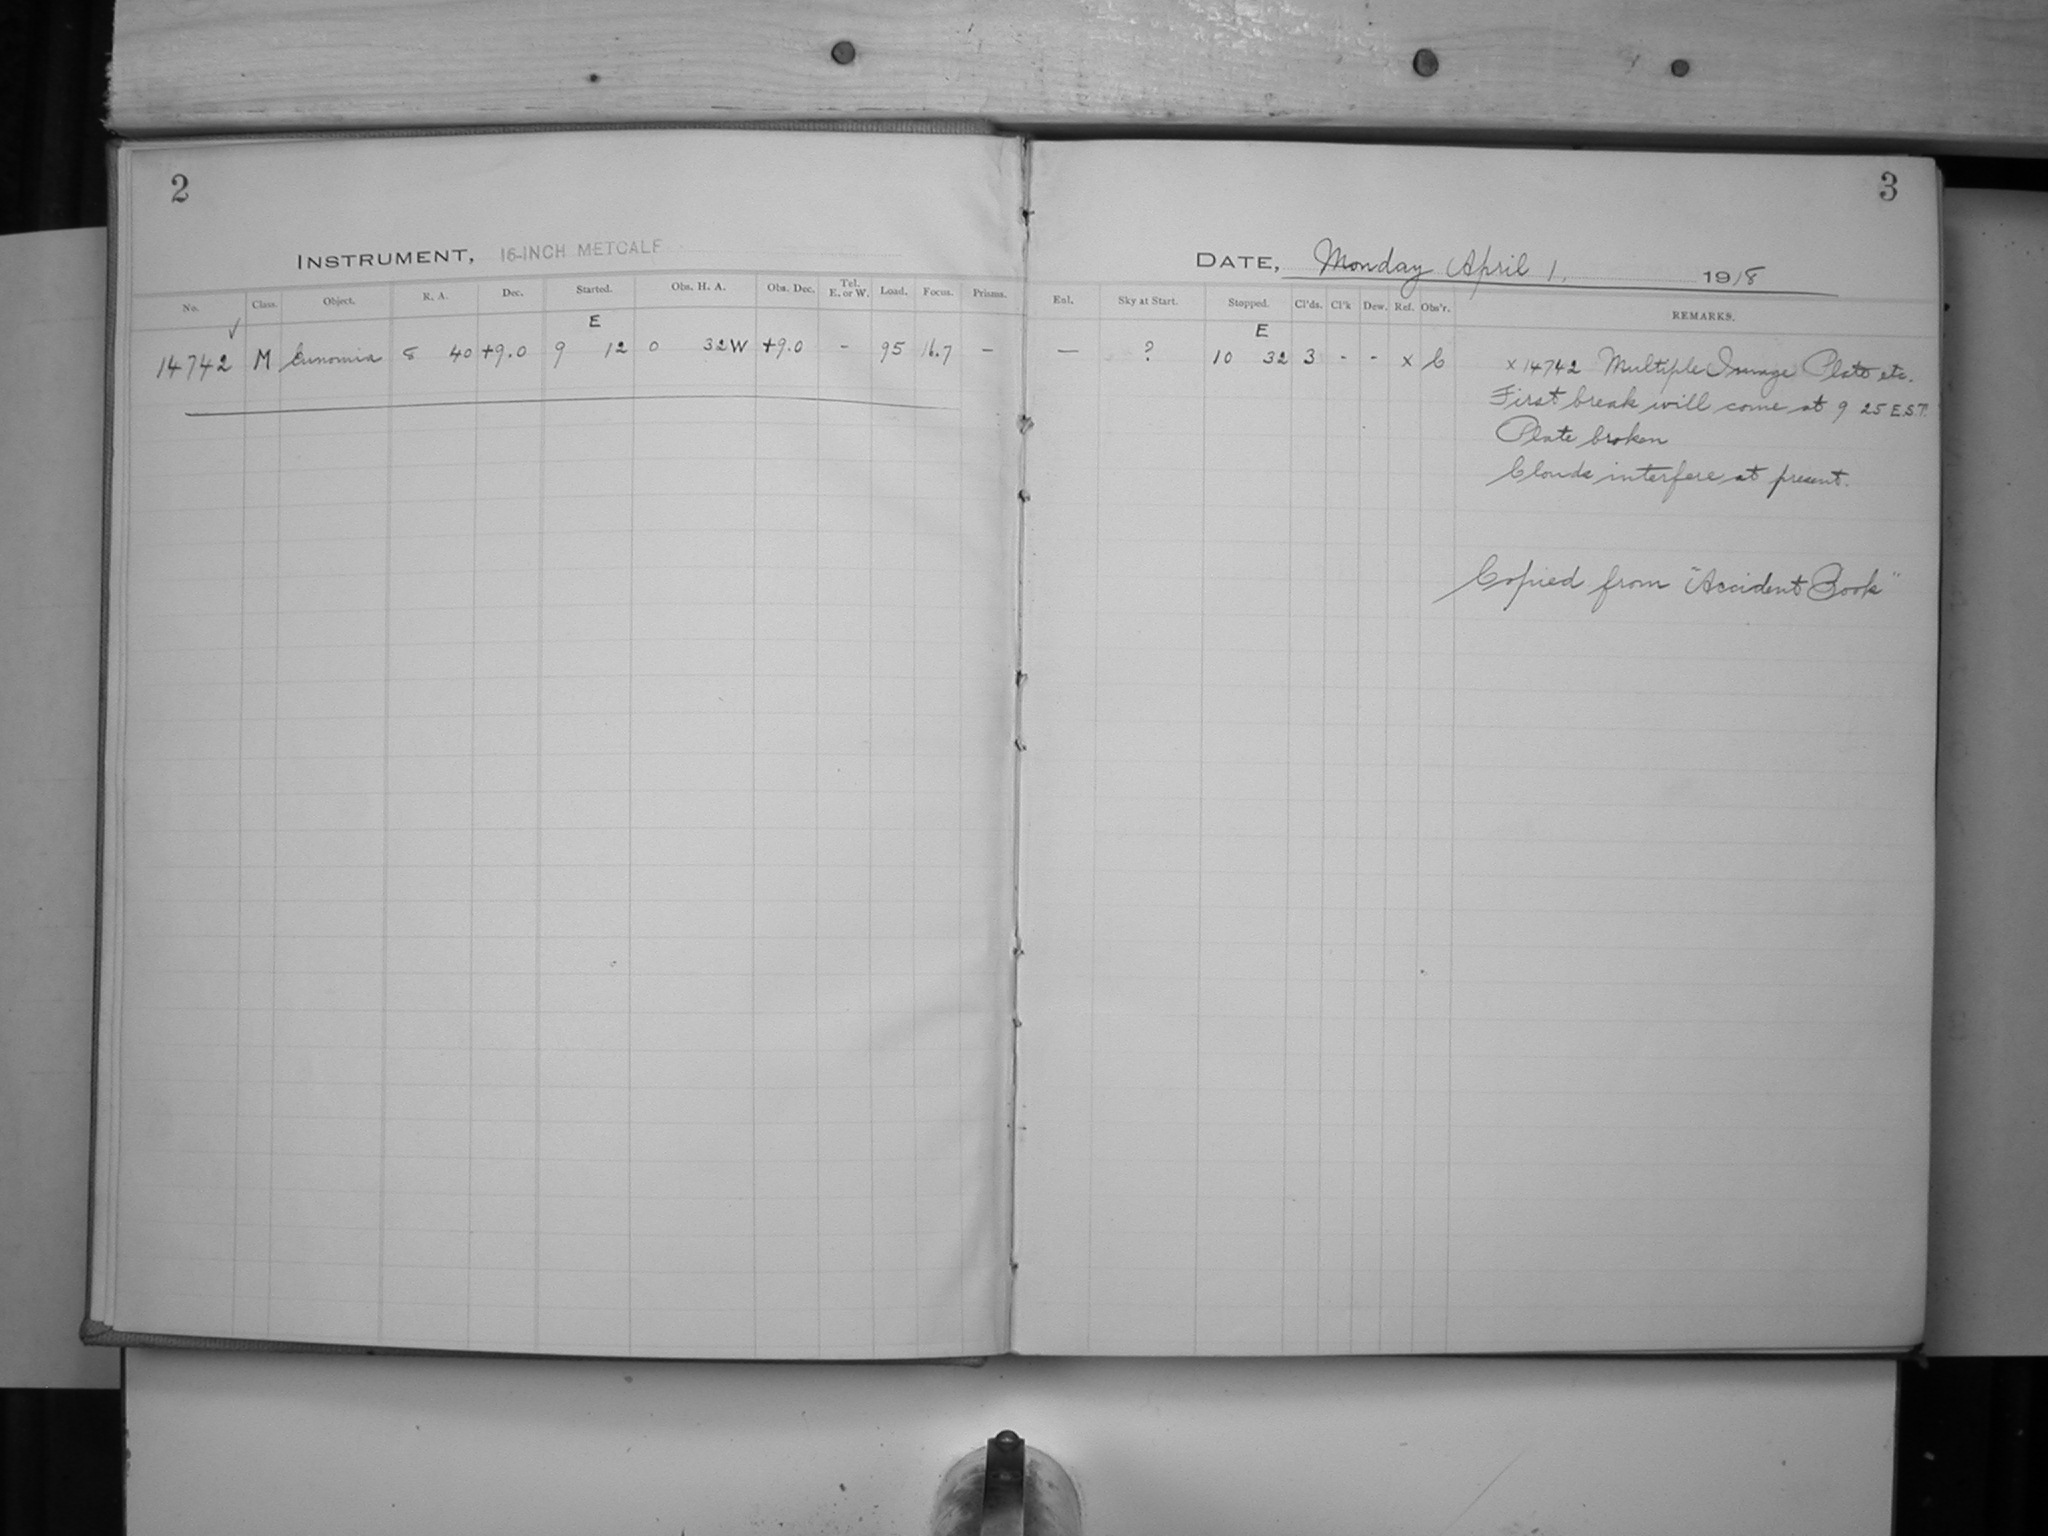 2
INSTRUMENT, 16-INCH METCALF
No. Class. Object. R. A. Dec. Started. Obs. H. A. Obs. Dec. Tel. E. or W. Load. Focus. Prisms.
E
✓
14742 M Eunomia 8 40 +9.0 9 12 0 32W +9.0 - 95 16.7 —
3
DATE, Monday April 1, 1918
Enl. Sky at Start. Stopped. Cl'ds. Cl'k Dew. Ref. Obs'r. REMARKS.
E
— ? 10 32 3 - - x C x 14742 Multiple Image Plate etc.
First break will come at 9 25 E.S.T.
Plate broken
Clouds interfere at present.
Copied from "Accident Book"